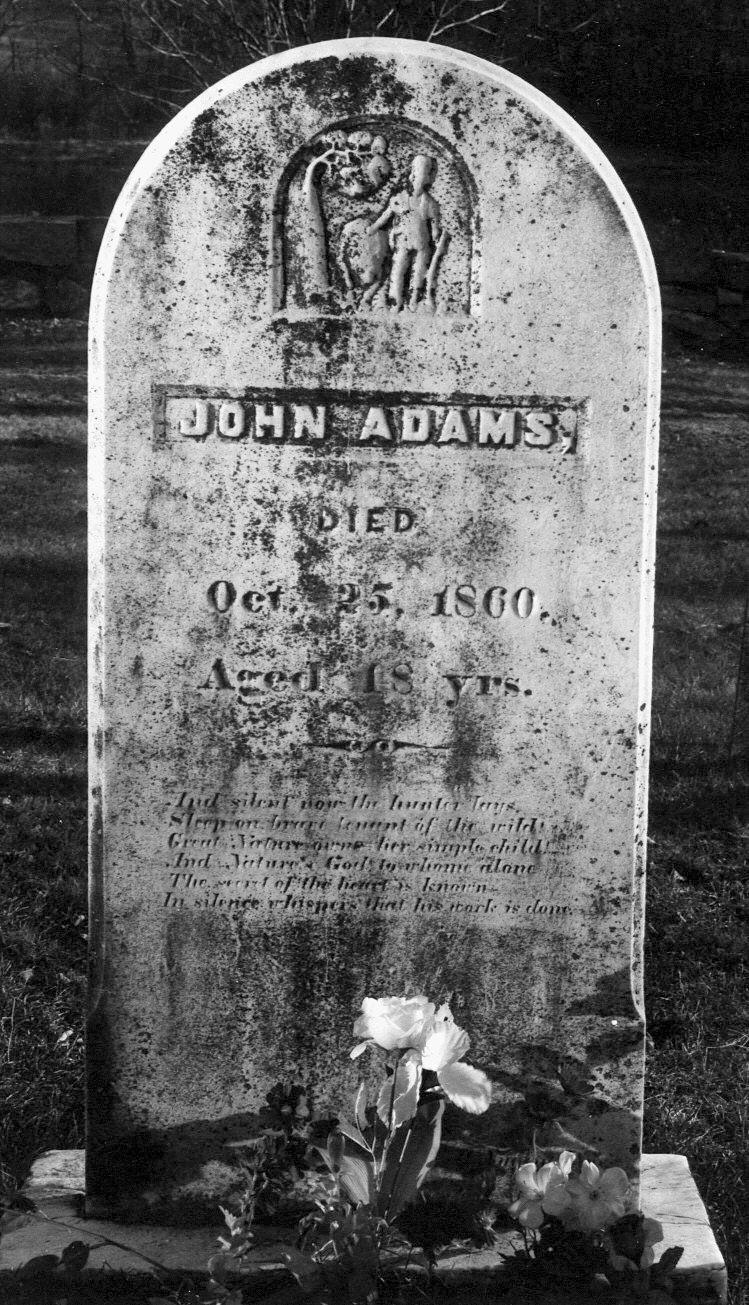 JOHN ADAMS,
DIED
Oct. 25, 1860.
Aged 48 yrs.
And silent now the hunter lays.
Sleep on, brave tenant of the wild!
Great Nature owns her simple child!
And Nature's God, to whome alone
The secret of the heart is known—
In silence whispers that his work is done.